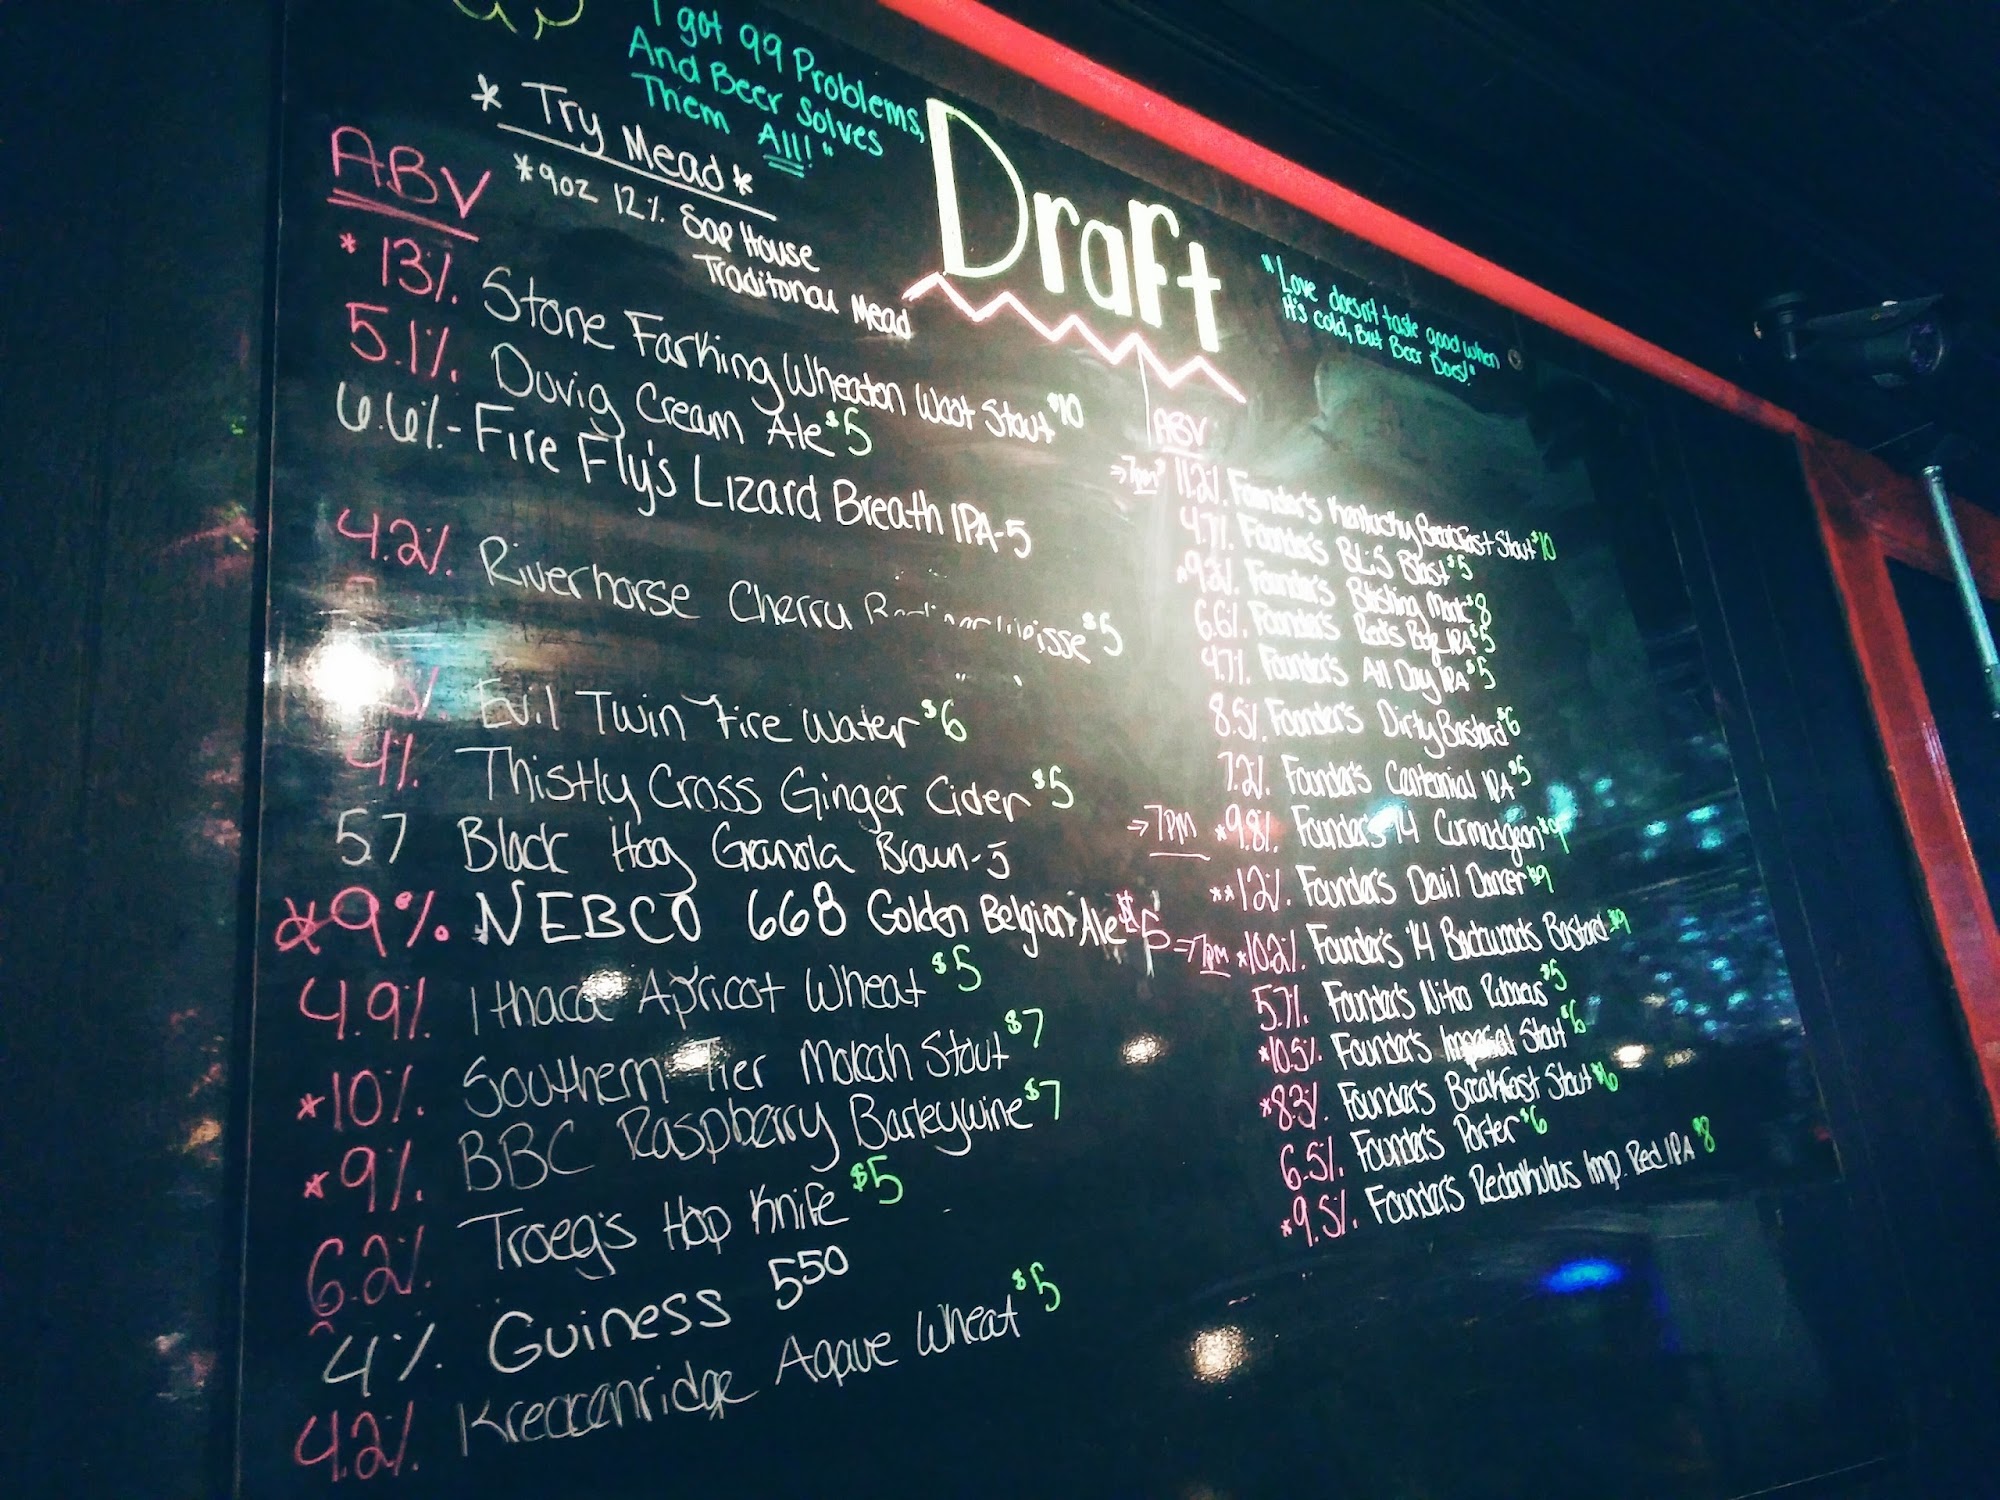 "I got 99 Problems,
And Beer Solves
Them All!"
* Try Mead *
*9oz 12% Sap House
Traditonal Mead
Draft
"Love doesn't taste good when
It's cold, But Beer Does!"
ABV
*13% Stone Farking Wheaton Woot Stout $10
5.1% Duvig Cream Ale $5
6.6% - Fire Fly's Lizard Breath IPA - 5
4.2% Riverhorse Cherry $5
Evil Twin Fire Water $6
4% Thistly Cross Ginger Cider $5
5.7 Black Hog Granola Brown - 5
*9% NEBCO 668 Golden Belgian Ale $5
4.9% Ithaca Apricot Wheat $5
*10% Southern Tier Mokah Stout $7
*9% BBC Raspberry Barleywine $7
6.2% Troeg's Hop Knife $5
4% Guiness 550
4.2% Kreacanridge Agave Wheat $5
ABV
→7pm* 11.2% Founder's Kentucky Breakfast Stout $10
4.7% Founder's Blis Blast $5
*9.2% Founder's Blushing Monk $8
6.6% Founder's Red's Rye IPA $5
4.7% Founder's All Day IPA $5
8.5% Founder's Dirty Bastard $6
7.2% Founder's Centennial IPA $5
→7PM *9.8% Founder's '14 Curmudgeon $9
**12% Founder's Devil Dancer $9
→7pm *10.2% Founder's '14 Backwoods Bastard $9
5.7% Founder's Nitro Rubaeus $5
*10.5% Founder's Imperial Stout $6
*8.3% Founder's Breakfast Stout $6
6.5% Founder's Porter $6
*9.5% Founder's Redankulous Imp. Red IPA $8